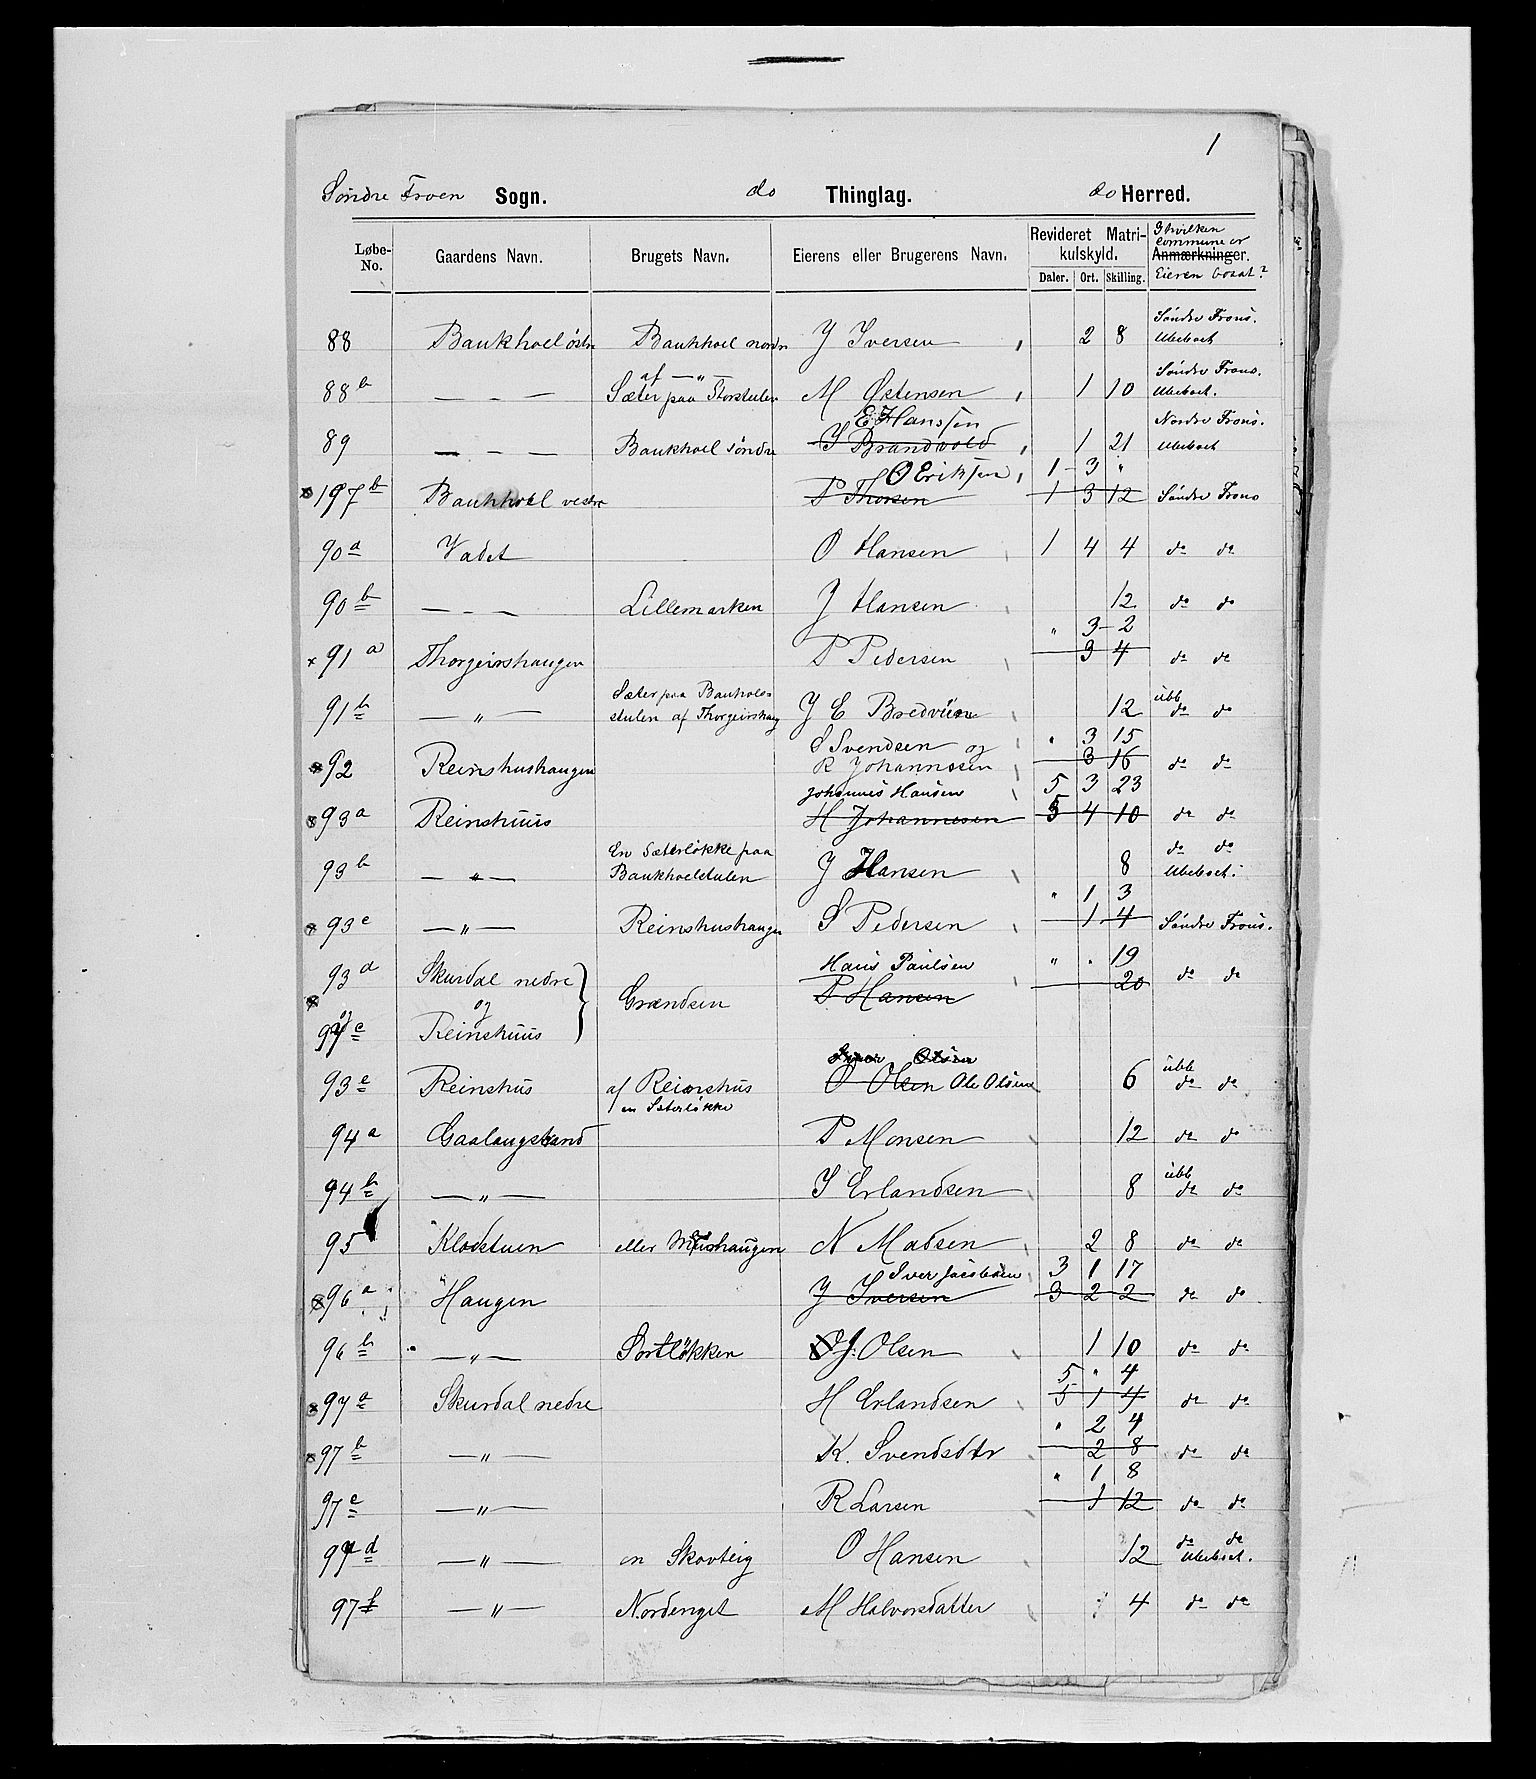 1
Søndre Froen Sogn. do Thinglag. do Herred.
Løbe-No. Gaardens Navn. Brugets Navn. Eierens eller Brugerens Navn. Revideret Matrikulskyld. Daler. Ort. Skilling. I hvilken commune er Anmærkninger. Eieren bosat?
88 Baukhoel østre Baukhoel nordre J Iversen 2 8 Søndre Frons. Ubeboet
88 b — - — af — " — Sæter paa Storstulen M Østensen 1 10 Søndre Frons. Ubeboet.
E Hanssen
89 — - — Baukhoel søndre I Brandvold 1 21 Nordre Frons. Ubeboet
O Eriksen 1 3 "
197 b Baukhoel vestre P Thorsen 1 3 12 Søndre Frons
90 a Vadet O Hansen 1 4 4 do do
90 b — - — Lillemarken J Hansen 12 do do
" 3 2
91 a Thorgeirshaugen P Pedersen 3 4 do do
91 b — " — Sæter paa Baukhols stulen af Thorgeirshaug J E Bredviin 12 ubb do do
" 3 15
92 Reinshushaugen S Svendsen og R Johannssen 3 16 do do
Johannes Hansen 5 3 23
93 a Reinshuus H Johannesen 5 4 10 do do
93 b — " — En Sæterløkke paa Baukhoelstulen J Hansen 8 do do Ubeboet.
" 1 3
93 c — " — Reinshushaugen S Pedersen 1 4 Søndre Frons.
Hans Paulsen " . 19
93 d Skurdal nedre og Grændsen P Hansen 20 do do
og 97 e Reinshuus
Olsen
93 e Reinshus af Reinshus en Sæterløkke O Olsen Ole Olsen 6 ubb do do
94 a Gaalaugstrand P Monsen 12 do do
94 b — " — I Erlandsen 8 ubb do do
95 Klodstuen eller haugen N Madsen 2 8 do do
Iver Jacobsen 3 1 17
96 a Haugen J Iversen 3 2 2 do do
96 b — " — Sortløkken J. Olsen 1 10 do do
5 " 4
97 a Skurdal nedre H Erlandsen 5 1 4 do do
" 2 4
97 b — " — K. Svendsdtr 2 8 do do
" 1 8
97 c — " — R Larsen 1 12 do do
97 d — " — en Skovteig O Hansen 12 do do Ubeboet.
97 f — " — Nordenget M Halvorsdatter 4 do do